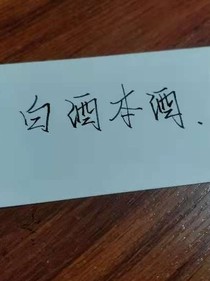 白酒本酒、